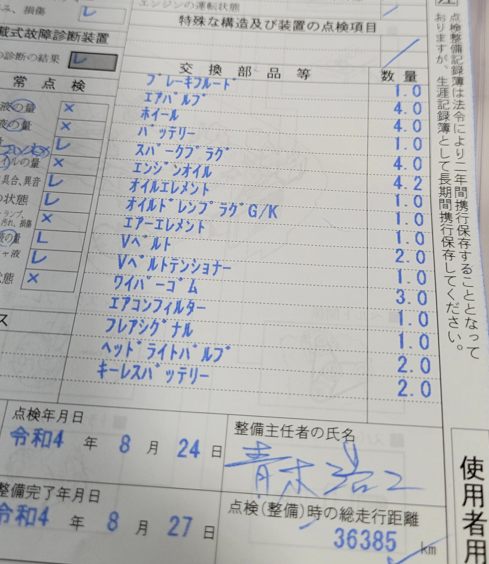 み、損傷 レ
エンジンの運転状態
特殊な構造及び装置の点検項目
載式故障診断装置
の診断の結果 レ
交換部品等 数量
常点検
ブレーキフルード 1.0
液の量 ×
エアバルブ 4.0
液の量 ×
ホイール 4.0
レ
バッテリー 1.0
イルの量 ×
スパークプラグ 4.0
具合、異音 レ
エンジンオイル 4.2
の状態 レ
オイルエレメント 1.0
ランプ、 汚れ、損傷 レ
オイルドレンプラグG/K 1.0
液の量 レ
エアーエレメント 1.0
ャ液 レ
Vベルト 2.0
状態 ×
Vベルトテンショナー 1.0
ワイパーゴム 3.0
エアコンフィルター 1.0
ス
フレアシグナル 1.0
ヘッドライトバルブ 2.0
キーレスバッテリー 2.0
点検整備記録簿は法令により二年間携行保存することとなって
おりますが、生涯記録簿として長期間携行保存してください。
点検年月日
令和4年8月24日
整備主任者の氏名
整備完了年月日
令和4年8月27日
点検(整備)時の総走行距離
36385 km
使用者用